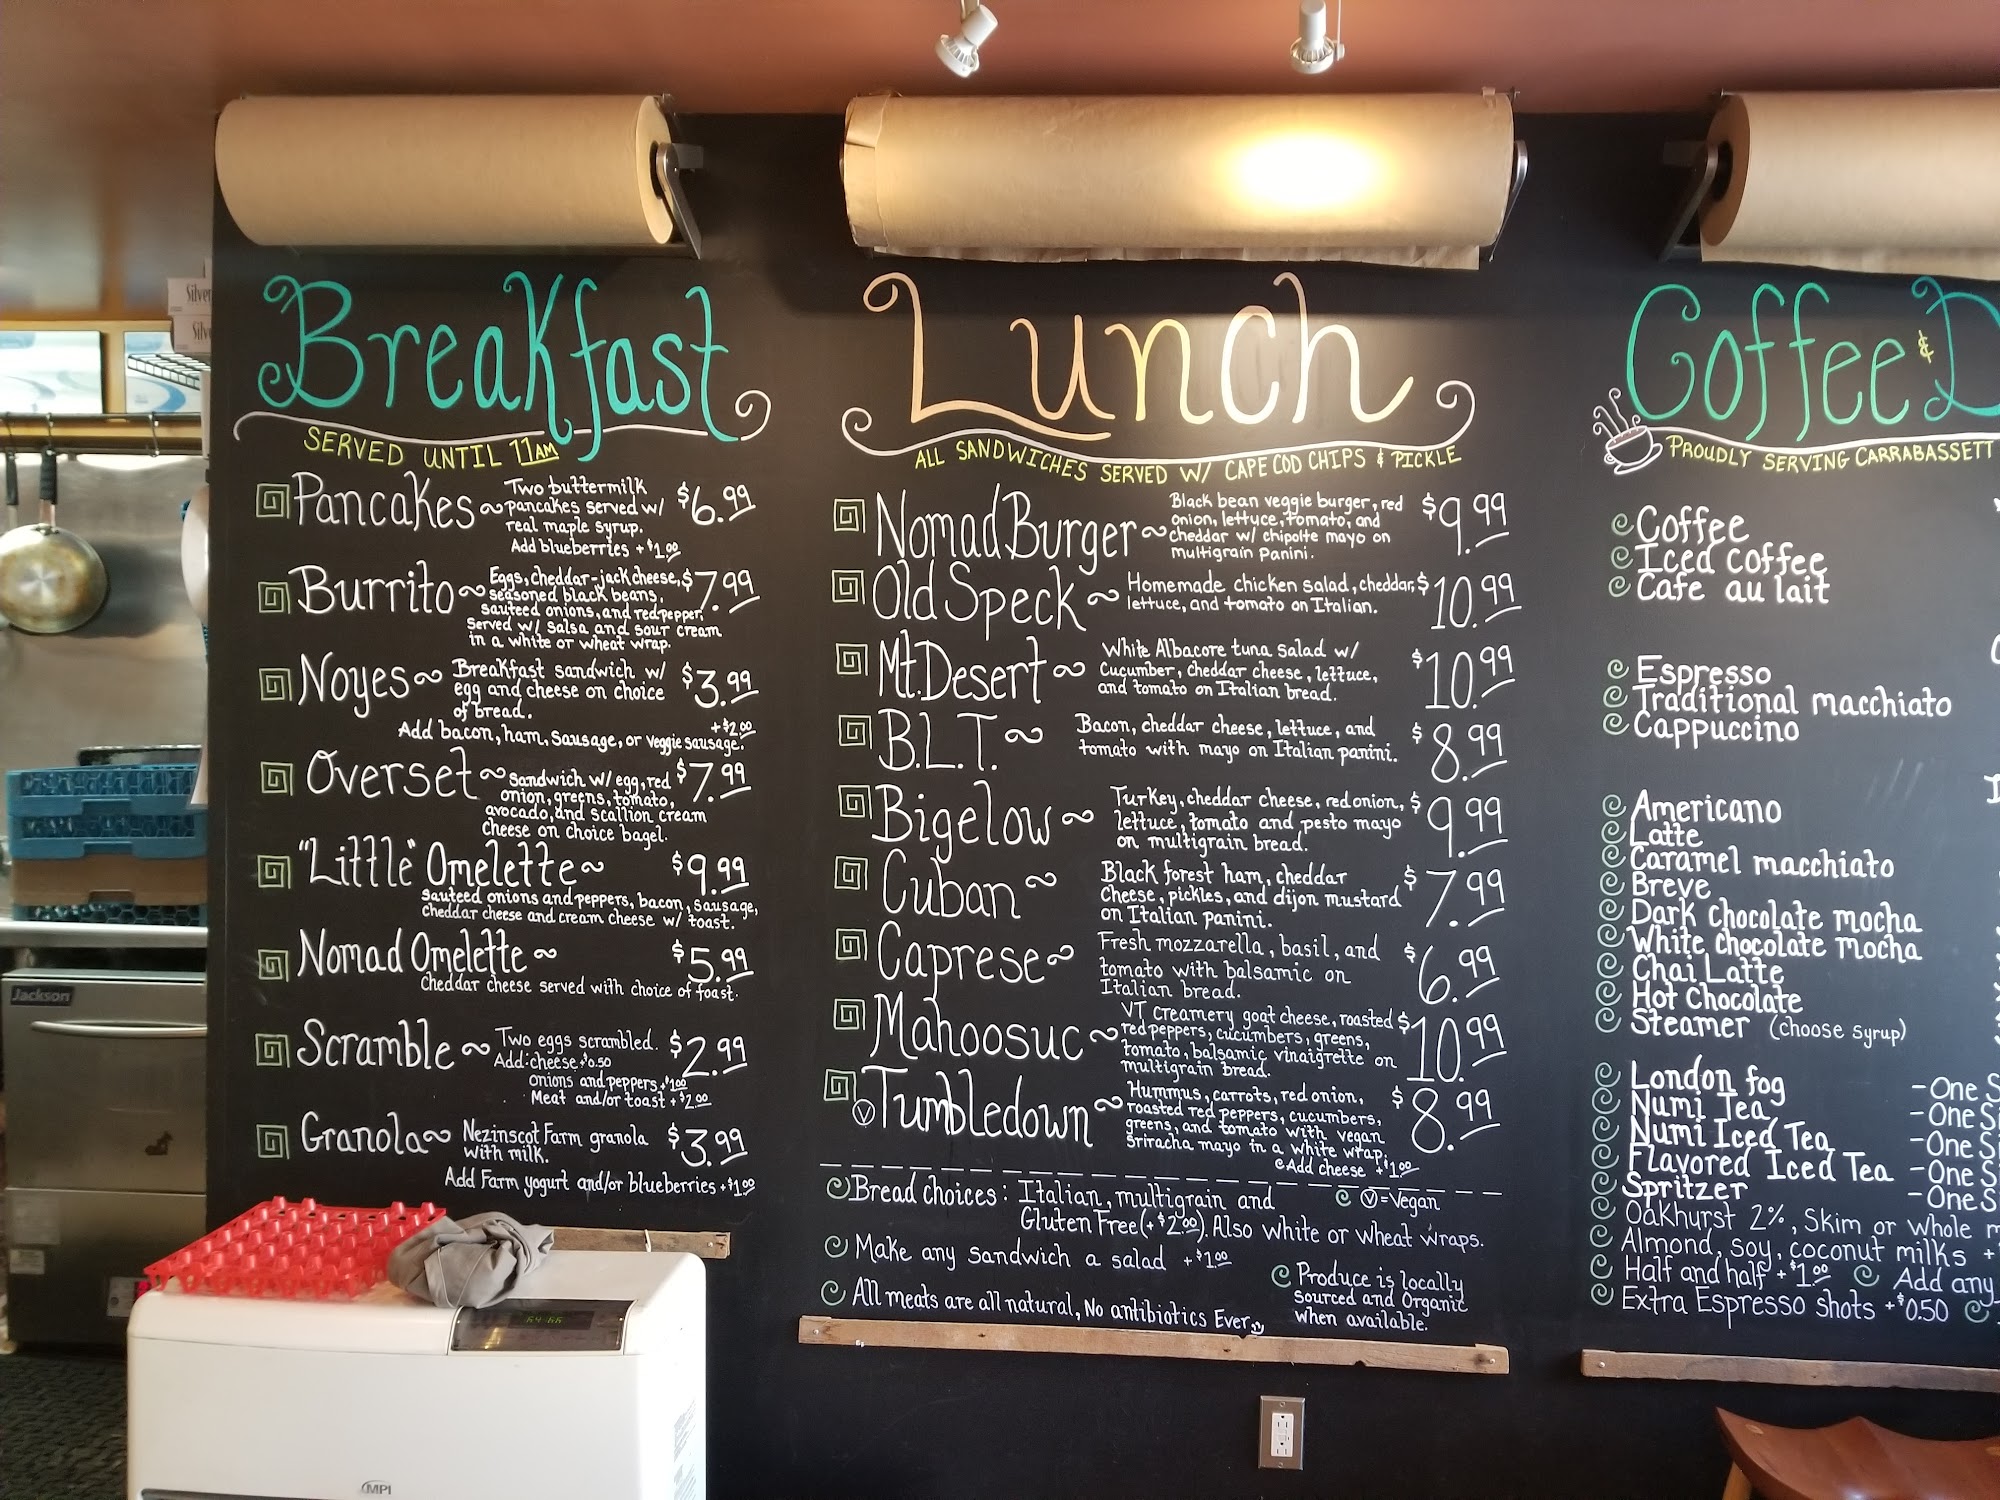 Breakfast
SERVED UNTIL 11AM
Pancakes ~ Two buttermilk $6.99
pancakes served w/
real maple syrup.
Add blueberries +$1.00
Burrito ~ Eggs, cheddar-jack cheese, $7.99
seasoned black beans,
sauteed onions, and red pepper,
served w/ salsa and sour cream
in a white or wheat wrap.
Noyes ~ Breakfast sandwich w/ $3.99
egg and cheese on choice
of bread.
+$2.00
Add bacon, ham, sausage, or veggie sausage.
Overset ~ Sandwich w/ egg, red $7.99
onion, greens, tomato,
avocado, and scallion cream
cheese on choice bagel.
"Little" Omelette ~ $9.99
Sauteed onions and peppers, bacon, sausage,
cheddar cheese and cream cheese w/ toast.
Nomad Omelette ~ $5.99
Cheddar cheese served with choice of toast.
Scramble ~ Two eggs scrambled. $2.99
Add: cheese +$0.50
onions and peppers +$1.00
Meat and/or toast + $2.00
Granola ~ Nezinscot Farm granola $3.99
with milk.
Add Farm yogurt and/or blueberries +$1.00
Lunch
ALL SANDWICHES SERVED W/ CAPE COD CHIPS & PICKLE
Nomad Burger ~ Black bean veggie burger, red $9.99
onion, lettuce, tomato, and
cheddar w/ chipolte mayo on
multigrain panini.
Old Speck ~ Homemade chicken salad, cheddar, $10.99
lettuce, and tomato on Italian.
Mt. Desert ~ White Albacore tuna salad w/ $10.99
Cucumber, cheddar cheese, lettuce,
and tomato on Italian bread.
B.L.T. ~ Bacon, cheddar cheese, lettuce, and $8.99
tomato with mayo on Italian panini.
Bigelow ~ Turkey, cheddar cheese, red onion, $9.99
lettuce, tomato and pesto mayo
on multigrain bread.
Cuban ~ Black forest ham, cheddar $7.99
Cheese, pickles, and dijon mustard
on Italian panini.
Caprese ~ Fresh mozzarella, basil, and $6.99
tomato with balsamic on
Italian bread.
Mahoosuc ~ VT creamery goat cheese, roasted $10.99
red peppers, cucumbers, greens,
tomato, balsamic vinaigrette on
multigrain bread.
V Tumbledown ~ Hummus, carrots, red onion, $8.99
roasted red peppers, cucumbers,
greens, and tomato with vegan
Sriracha mayo in a white wrap.
Add cheese +$1.00
Bread choices: Italian, multigrain and
Gluten Free (+$2.00). Also white or wheat wraps.
V = Vegan
Make any sandwich a salad +$1.00
All meats are all natural, No antibiotics Ever
Produce is locally
sourced and Organic
when available.
Coffee & D
PROUDLY SERVING CARRABASSETT
Coffee
Iced coffee
Cafe au lait
Espresso
Traditional macchiato
Cappuccino
Americano
Latte
Caramel macchiato
Breve
Dark chocolate mocha
White chocolate mocha
Chai Latte
Hot Chocolate
Steamer (choose syrup)
London fog - One S
Numi Tea - One S
Numi Iced Tea - One S
Flavored Iced Tea - One S
Spritzer - One S
Oakhurst 2%, Skim or whole m
Almond, soy, coconut milks +
Half and half +$1.00 Add any
Extra Espresso shots +$0.50
Silver
Silv
Jackson
MPI